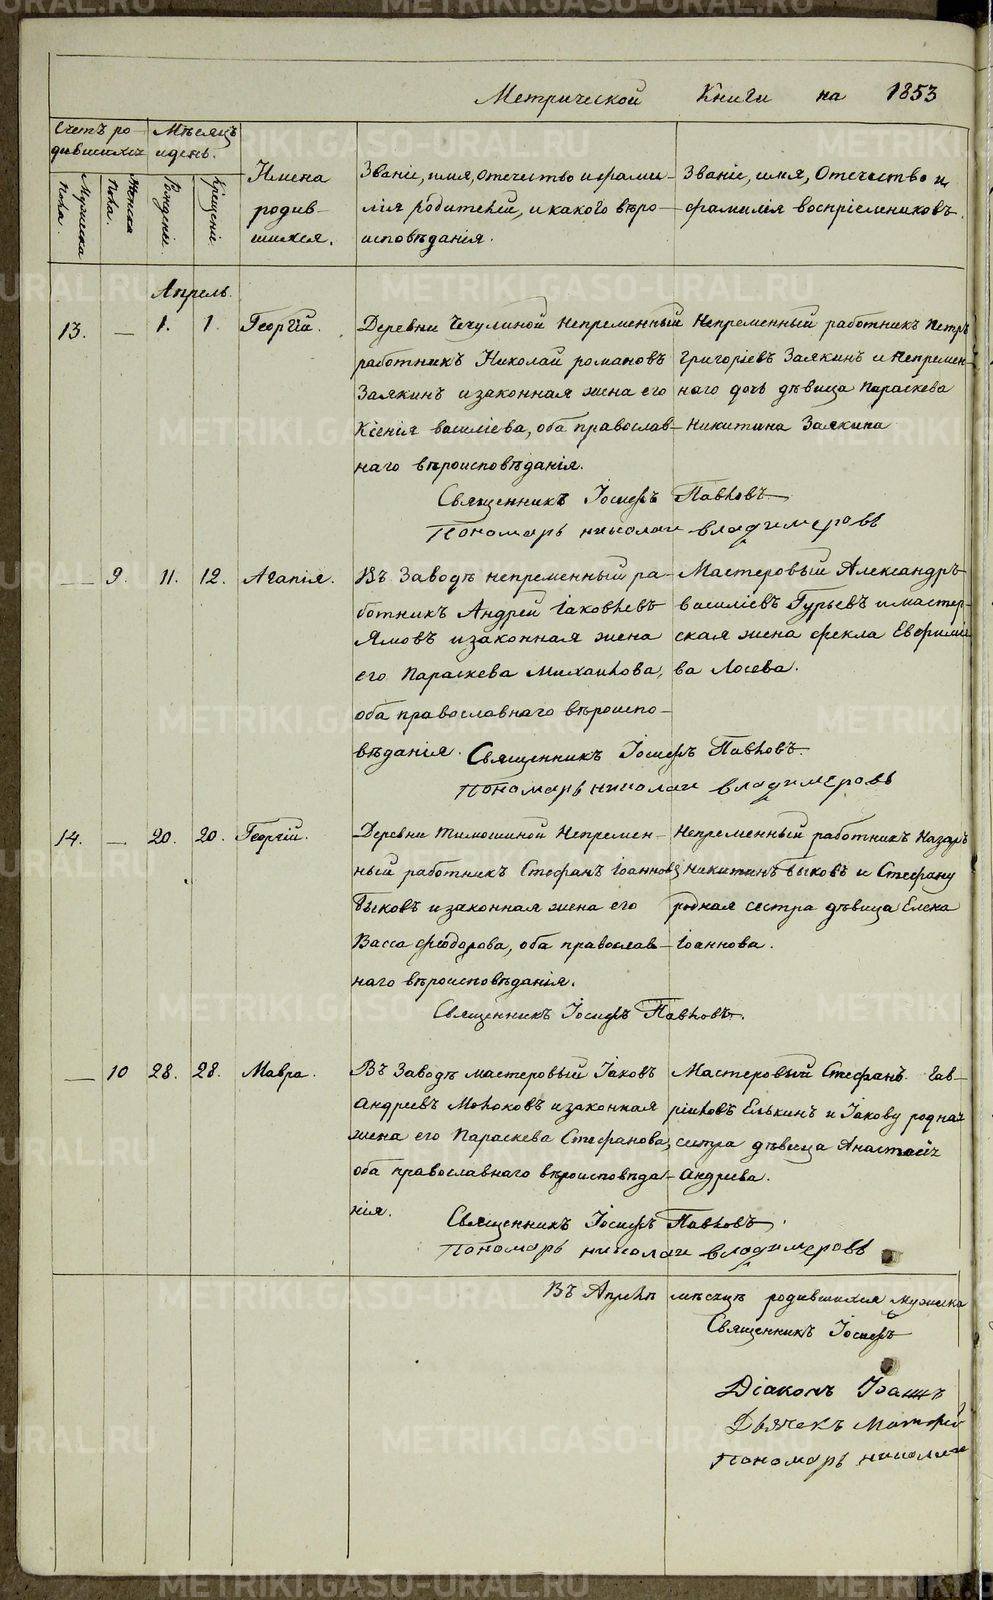 Метрической Книги на 1853
Счетъ ро- Мѣсяцъ
дившихся и день.
Мужеска пола. Женска пола. Рожденіе. Крещеніе.
Имена Званіе, имя, отечество и фами- Званіе, имя, Отечество и
родив- лія родителей, и какого вѣро- фамилія воспріемниковъ.
шихся. исповѣданія.
Апрель.
13. — 1. 1. Георгій. Деревни Чечулиной Непременный Непременный работникъ Петръ
работникъ Николай романовъ григоріевъ Заякинъ и Непремен-
Заякинъ и законная жена его наго дочь дѣвица Параскева
Ксенія василіева, оба православ- Никитина Заякина
наго вѣроисповѣданія.
Священникъ Іосифъ Павловъ
Пономарь николаи владимеровъ
— 9. 11. 12. Агапія. Въ Заводѣ непременный ра- Мастеровый Александръ
ботникъ Андрей Іаковлевъ василіевъ Гурьевъ и мастер-
Ямовъ и законная жена ская жена фекла Евфиміе
его Параскева Михаилова, ва Лосева.
оба православнаго вѣроиспо-
вѣданія. Священникъ Іосифъ Павловъ.
Пономарь николаи владимеровъ
14. — 20. 20. Георгій. Деревни Тимошиной Непремен- Непременный работникъ Назаръ
ный работникъ Стефанъ Іоанновъ никитинъ Быковъ и Стефану
Быковъ и законная жена его родная сестра дѣвица Елена
Васса феодорова, оба православ- Іоаннова.
наго вѣроисповѣданія.
Священникъ Іосифъ Павловъ.
— 10 28. 28. Мавра. Въ Заводѣ мастеровый Іаковъ Мастеровый Стефанъ Гав-
Андреевъ Молоковъ и законная ріиловъ Елькинъ и Іакову родная
жена его Параскева Стефанова, сестра дѣвица Анастасія
оба православнаго вѣроисповѣда- Андреева.
нія.
Священникъ Іосифъ Павловъ.
Пономарь николаи владимеровъ
Въ Апрелѣ мѣсяцѣ родившихся мужеска
Священникъ Іосифъ
Діаконъ Іоаннъ
Дьячекъ Матфей
Пономарь николаи
METRIKI.GASO-URAL.RU